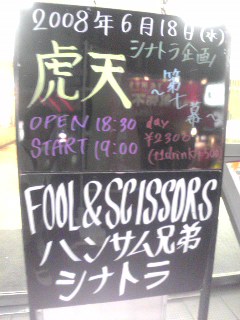 2008年6月18日(水)
シナトラ企画!
虎天
〜第十幕〜
OPEN 18:30
START 19:00
day
¥2300
FOOL&SCISSORS
ハンサム兄弟
シナトラ